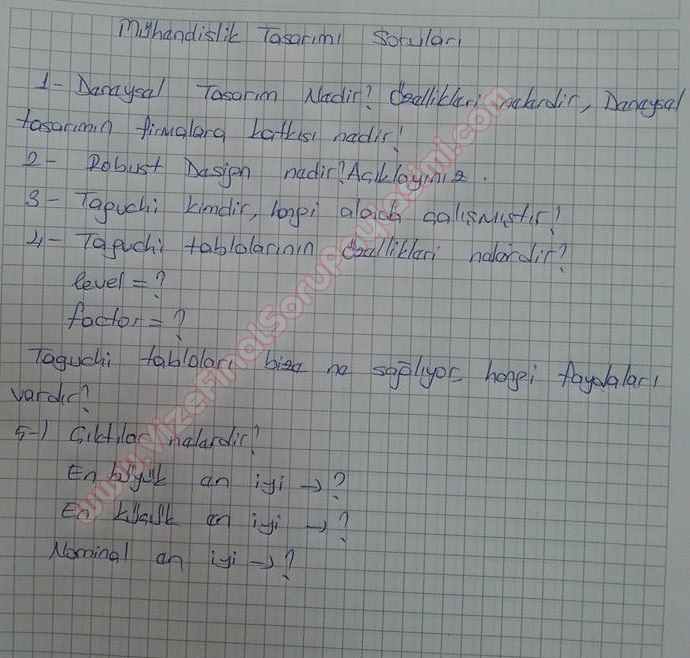 Mühendislik Tasarımı Soruları
1- Deneysel Tasarım Nedir? Özellikleri nelerdir, Deneysel
tasarımın firmalara katkısı nedir?
2- Robust Design nedir? Açıklayınız.
3- Taguchi kimdir, hangi alanda çalışmıştır?
4- Taguchi tablolarının özellikleri nelerdir?
level = ?
factor = ?
Taguchi tabloları bize ne sağlıyor, hangi faydaları
vardır?
5-) Çıktılar nelerdir?
En büyük en iyi → ?
En küçük en iyi → ?
Nominal en iyi → ?
www.VizeFinalSoruPaylasimi.com